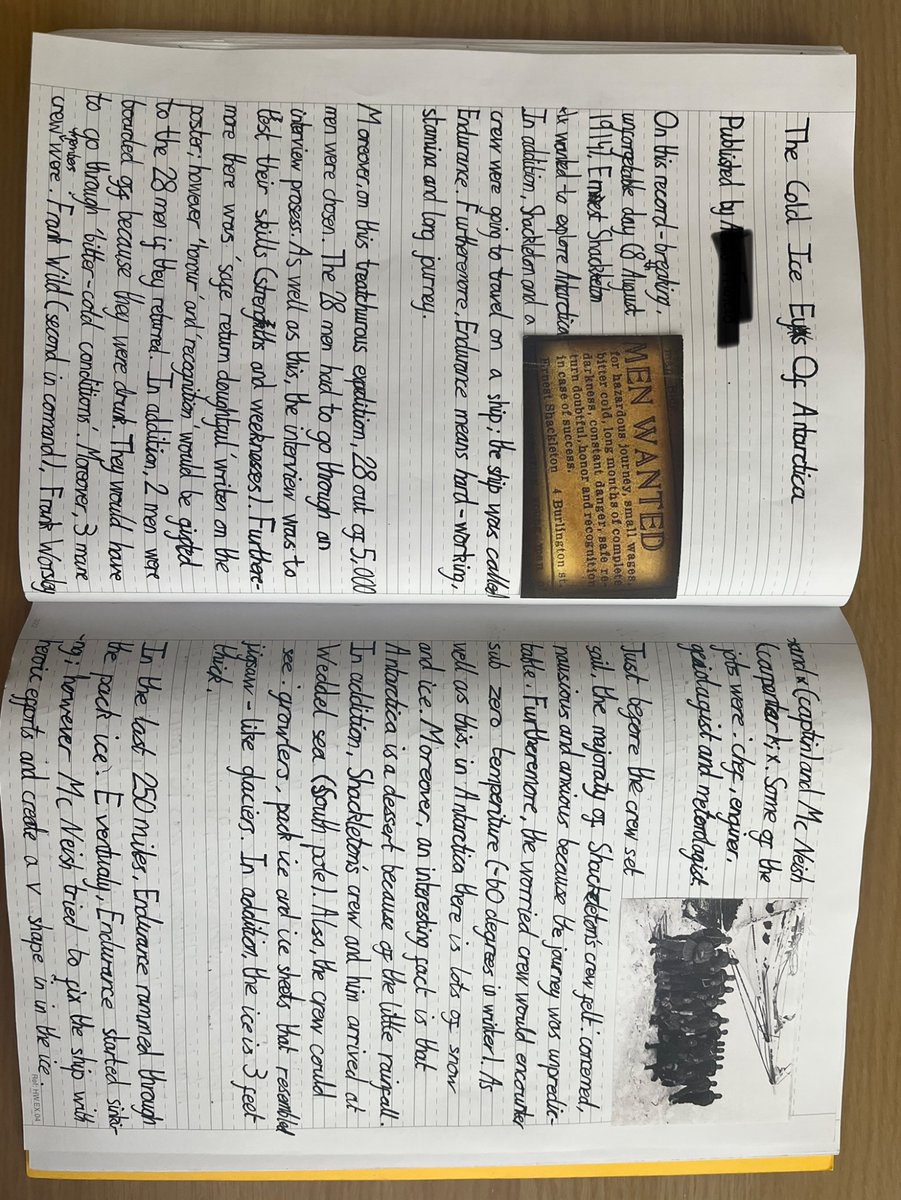 The Cold Ice Eyes Of Antarctica
Published by A
On this record-breaking,
unforgetable day (8 August
1914), Ernest Shackleton
wanted to explore Antarctica.
In addition, Shackleton and a
crew were going to travel on a ship; the ship was called
Endurance. Furtheremore, Endurance means hard-working,
stamina and long journey.
MEN WANTED
for hazardous journey, small wages,
bitter cold, long months of complete
darkness, constant danger, safe re-
turn doubtful, honor and recognition
in case of success.
Ernest Shackleton 4 Burlington st
Moreover, on this treatchurous expedition, 28 out of 5,000
men were chosen. The 28 men had to go through an
interview prosess. As well as this, the interview was to
test their skills (strenghths and weeknesses). Further-
more there was 'safe return doughtful' writen on the
poster; however 'honour' and recognition would be gifted
to the 28 men if they returned. In addition, 2 men were
boarded off because they were drunk. They would have
to go through 'bitter-cold' conditions. Morover, 3 more
crew members were: Frank Wild (second in comand), Frank Worsley
(captin) and Mc Neish
(carpenter). Some of the
jobs were: chef, enginer,
geologist and meterologist.
Just before the crew set
sail, the majoraty of Shackleton's crew felt: concerned,
nausious and anxious because the journey was unpredic-
table. Furtheremore, the worried crew would encounter
sub zero temperiture (-60 degrees in winter). As
well as this, in Antarctica there is lots of snow
and ice. Moreover, an interesting fact is that
Antarctica is a dessert because of the little rainfall.
In addition, Shackleton's crew and him arrived at
Weddel sea (South pole). Also, the crew could
see: growlers, pack ice and ice sheets that resembled
jigsaw-like glaciers. In addition, the ice is 3 feet
thick.
In the last 250 miles, Endurance rammed through
the pack ice. Eventualy, Endurance started sinki-
ng; however Mc Neish tried to fix the ship with
heroic efforts and create a v shape in in the ice.
Ref: HW.EX.04